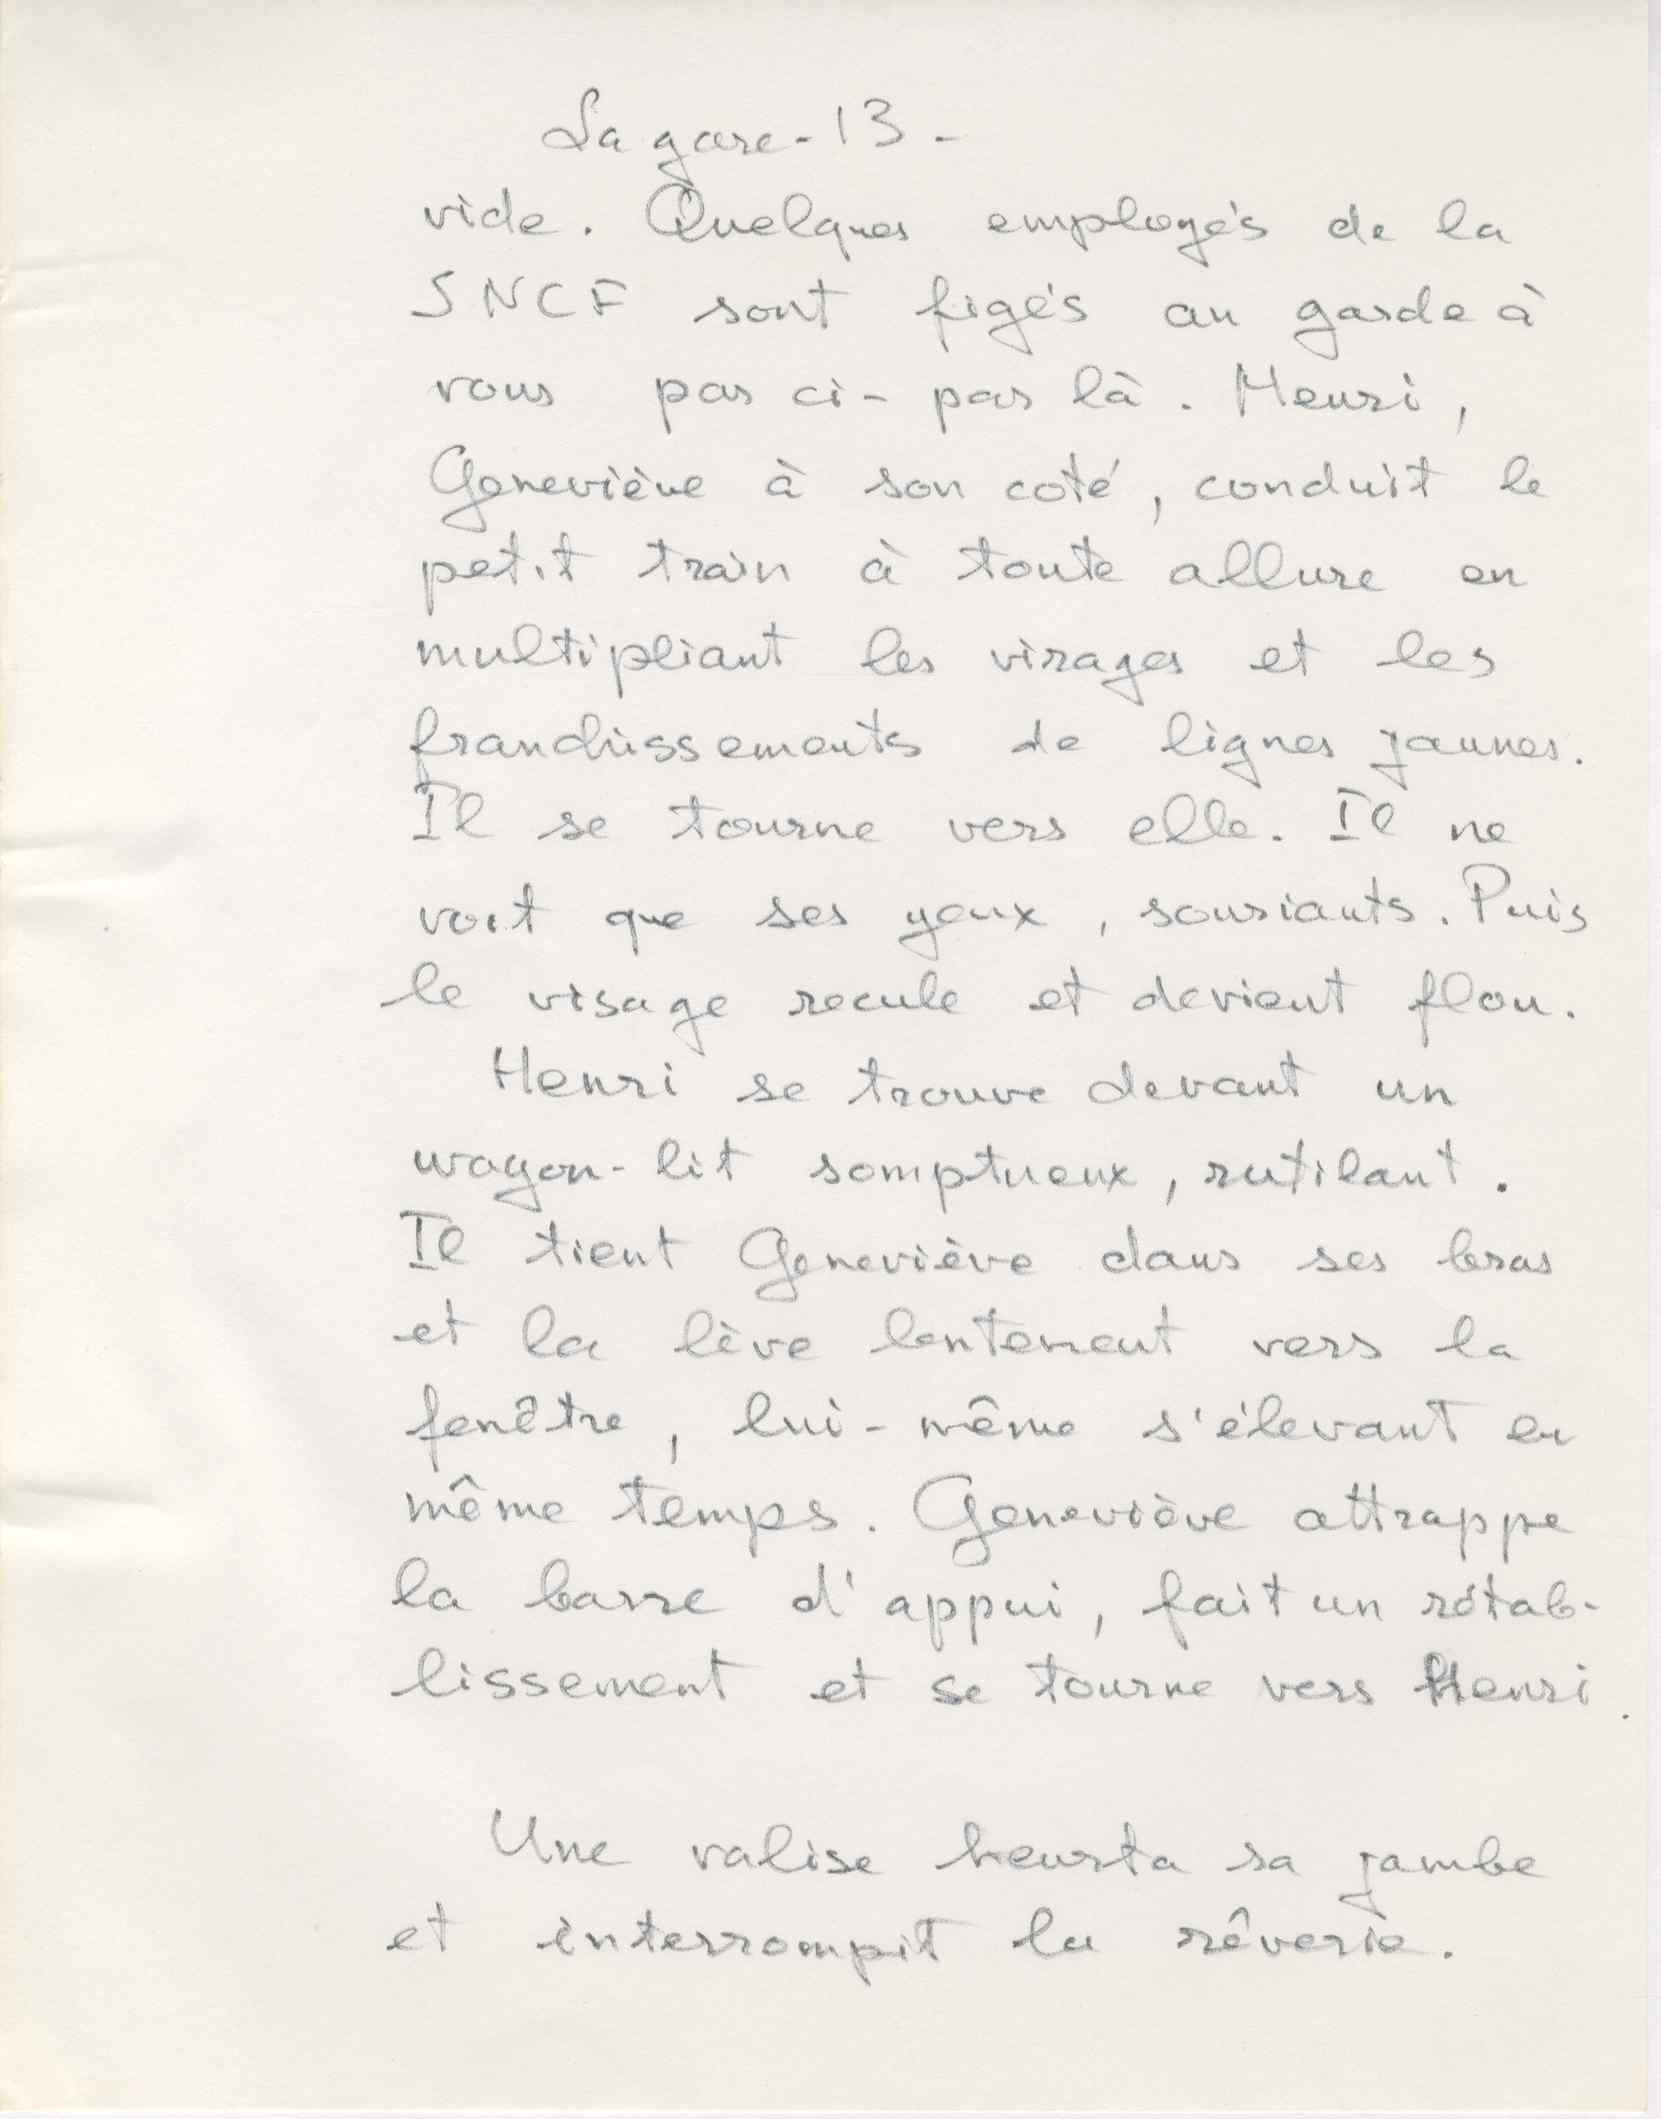 La gare - 13 -
vide. Quelques employés de la
SNCF sont figés au garde à
vous par ci - par là. Henri,
Geneviève à son coté, conduit le
petit train à toute allure en
multipliant les virages et les
franchissements de lignes jaunes.
Il se tourne vers elle. Il ne
voit que ses yeux, souriants. Puis
le visage recule et devient flou.
Henri se trouve devant un
wagon-lit somptueux, rutilant.
Il tient Geneviève dans ses bras
et la lève lentement vers la
fenêtre, lui-même s'élevant en
même temps. Geneviève attrappe
la barre d'appui, fait un rétab-
lissement et se tourne vers Henri.
Une valise heurta sa jambe
et interrompit la rêverie.